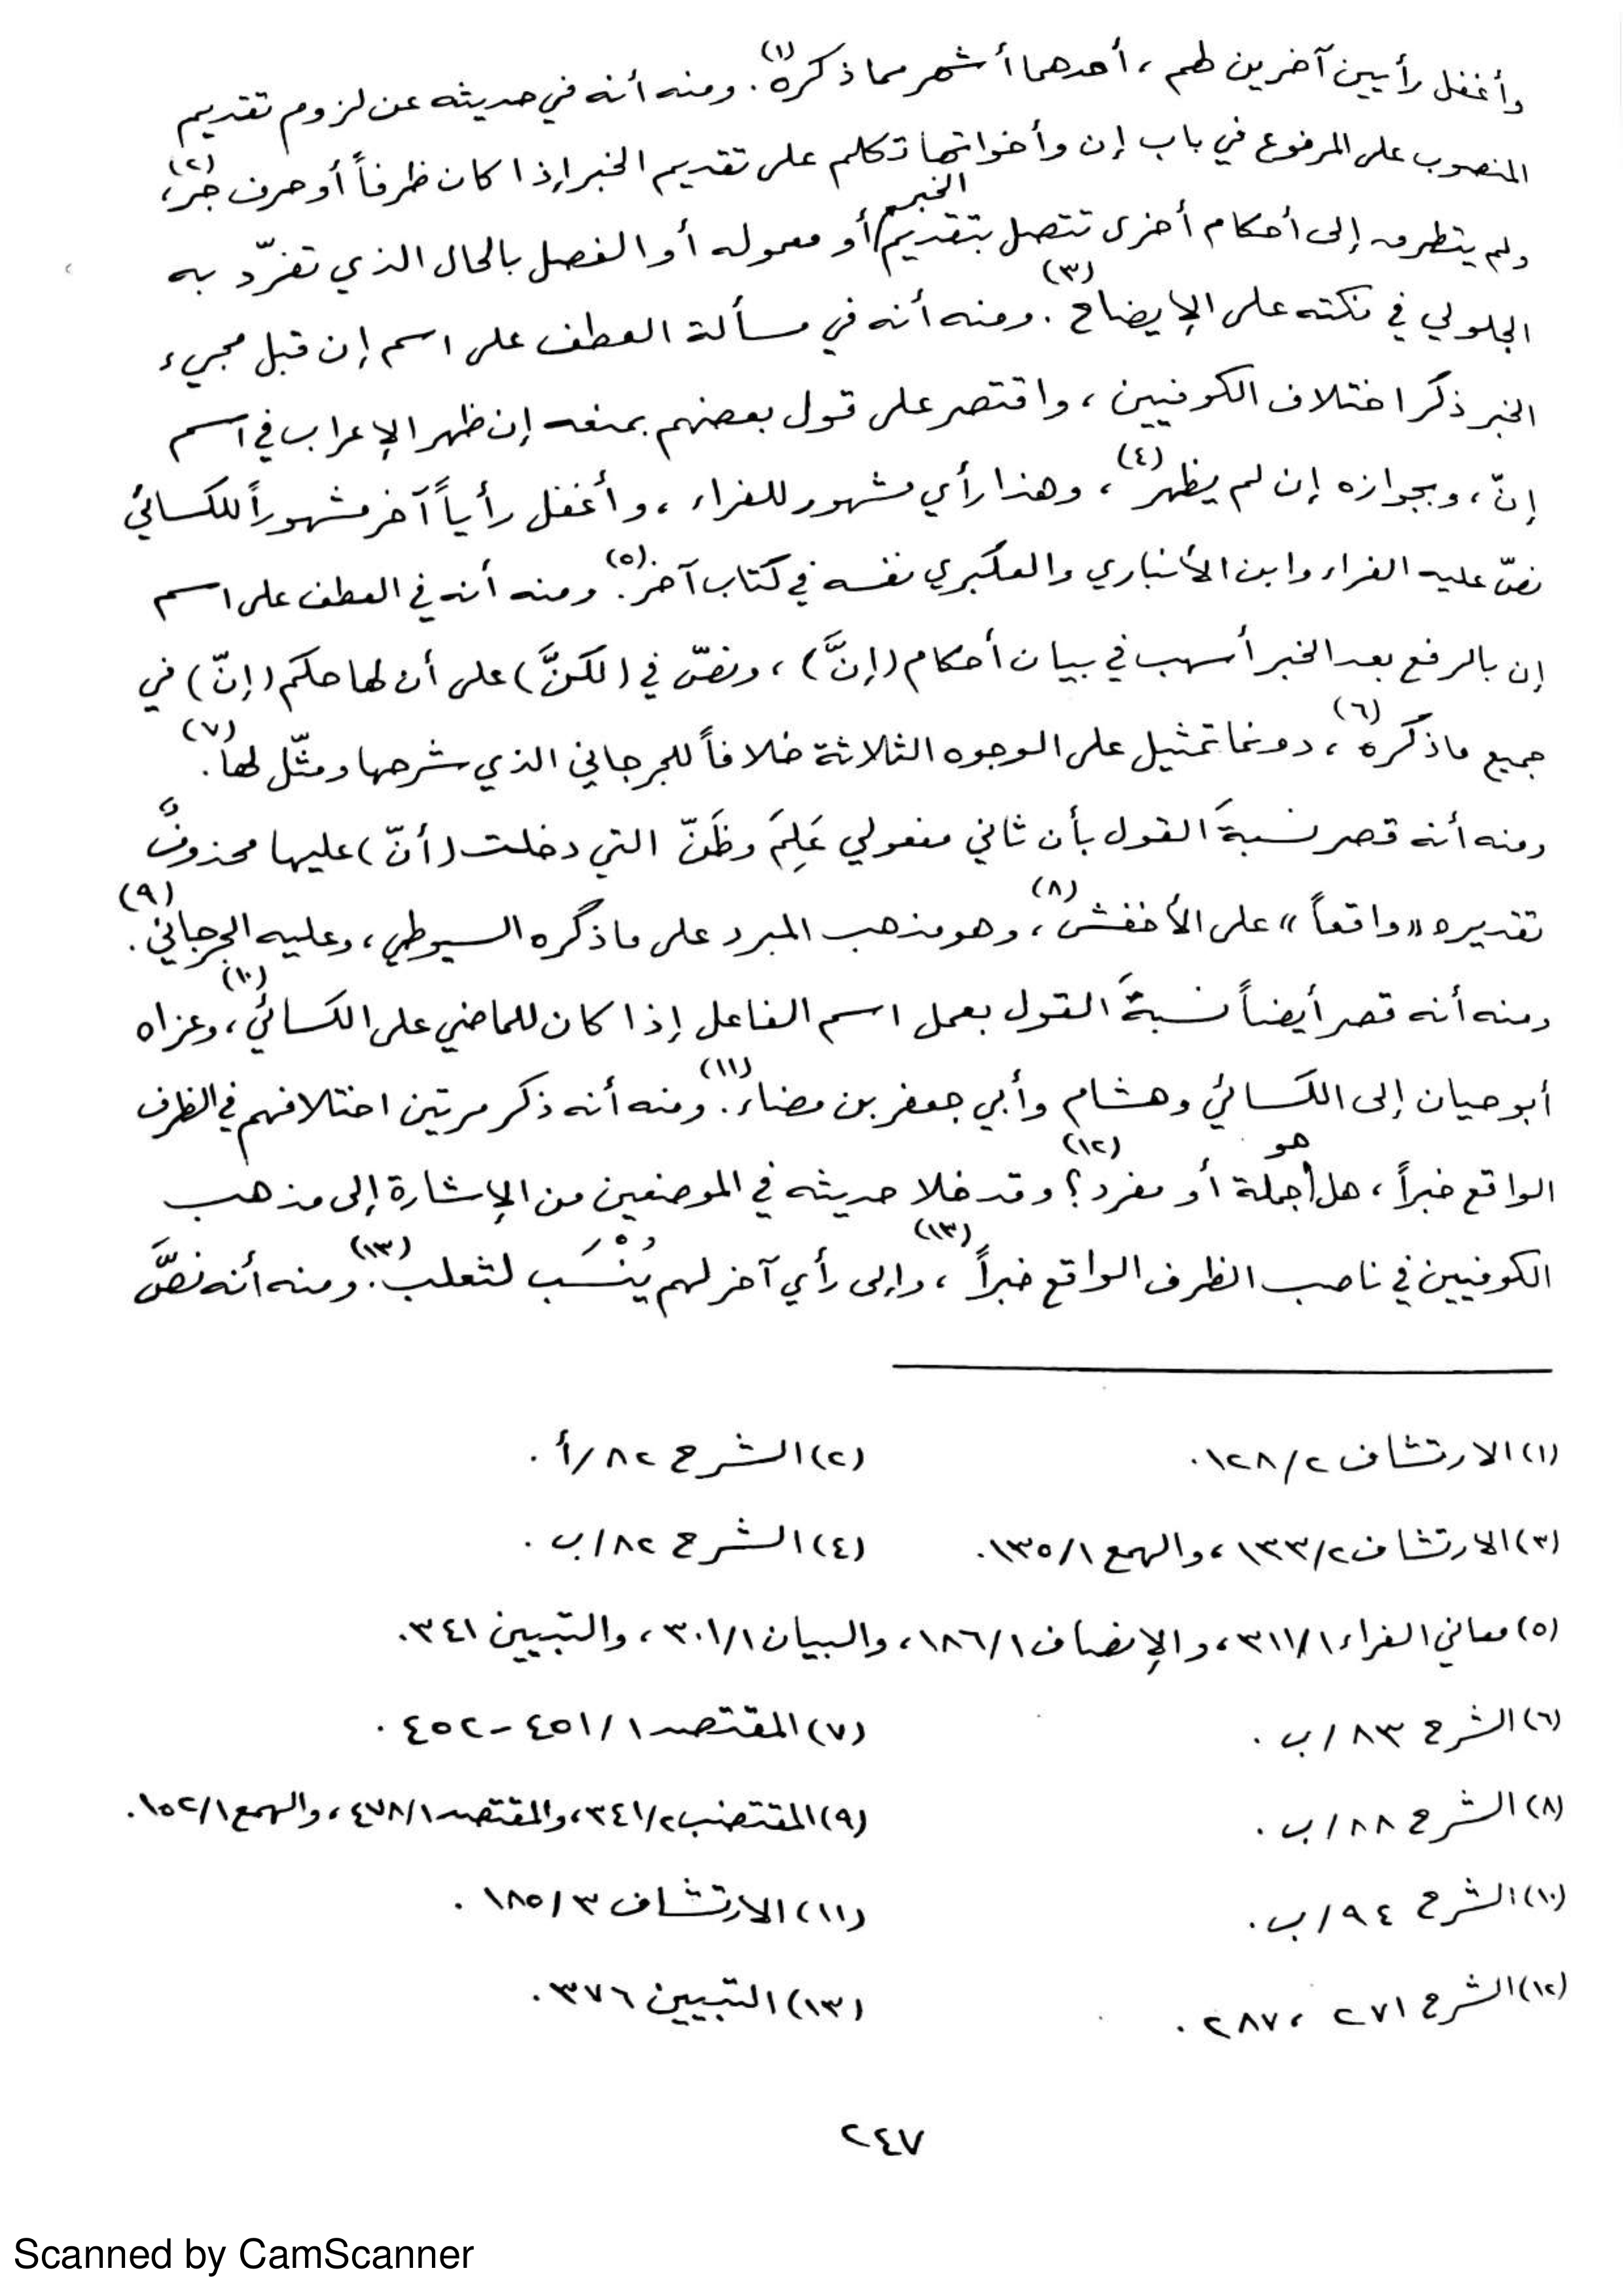 وأغفل رأيين آخرين لهم، أحدهما أشهر مما ذكره(١). ومنه أنه في حديثه عن لزوم تقديم
المنصوب على المرفوع في باب إن وأخواتها تكلم على تقديم الخبر إذا كان ظرفاً أو حرف جر(٢)،
ولم يتطرق إلى أحكام أخرى تتصل بتقديم الخبر أو معموله أو الفصل بالحال الذي تفرّد به
الجلولي في نكته على الإيضاح(٣). ومنه أنه في مسألة العطف على اسم إن قبل مجيء
الخبر ذكر اختلاف الكوفيين، واقتصر على قول بعضهم بمنعه إن ظهر الإعراب في اسم
إنّ، وبجوازه إن لم يظهر(٤)، وهذا رأي مشهور للفراء، وأغفل رأياً آخر مشهوراً للكسائي
نصّ عليه الفراء وابن الأنباري والعكبري نفسه في كتاب آخر(٥). ومنه أنه في العطف على اسم
إن بالرفع بعد الخبر أسهب في بيان أحكام (إنَّ)، ونصّ في (لكنَّ) على أن لها حكم (إنّ) في
جميع ما ذكره(٦)، دونما تمثيل على الوجوه الثلاثة خلافاً للجرجاني الذي شرحها ومثّل لها(٧).
ومنه أنه قصر نسبةَ القول بأن ثاني مفعولي عَلِمَ وظَنّ التي دخلت (أنّ) عليها محذوفٌ
تقديره «واقعاً» على الأخفش(٨)، وهو مذهب المبرد على ما ذكره السيوطي، وعليه الجرجاني(٩).
ومنه أنه قصر أيضاً نسبةَ القول بعمل اسم الفاعل إذا كان للماضي على الكسائي(١٠)، وعزاه
أبو حيان إلى الكسائي وهشام وأبي جعفر بن مضاء(١١). ومنه أنه ذكر مرتين اختلافهم في الظرف
الواقع خبراً، هل هو جملة أو مفرد(١٢)؟ وقد خلا حديثه في الموضعين من الإشارة إلى مذهب
الكوفيين في ناصب الظرف الواقع خبراً(١٣)، وإلى رأي آخر لهم يُنْسَب لثعلب(١٣). ومنه أنه نصَّ
(١) الارتشاف ١٢٨/٢. (٢) الشرح ٨٢/أ.
(٣) الارتشاف ١٣٣/٢، والهمع ١٣٥/١. (٤) الشرح ٨٢/ب.
(٥) معاني الفراء ٣١١/١، والإنصاف ١٨٦/١، والبيان ٣٠١/١، والتبيين ٣٤١.
(٦) الشرح ٨٣/ب. (٧) المقتصد ٤٥١/١-٤٥٢.
(٨) الشرح ٨٨/ب. (٩) المقتضب ٣٤١/٢، والمقتصد ٤٧٨/١، والهمع ١٥٢/١.
(١٠) الشرح ٩٤/ب. (١١) الارتشاف ١٨٥/٣.
(١٢) الشرح ٢٧١، ٢٨٧. (١٣) التبيين ٣٧٦.
٢٤٧
Scanned by CamScanner